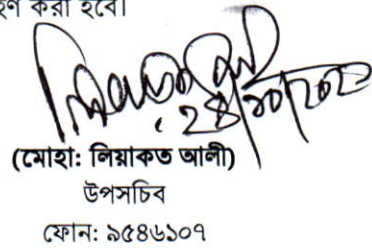 করা হবে।
(মোহা: লিয়াকত আলী)
উপসচিব
ফোন: ৯৫৪৬১০৭